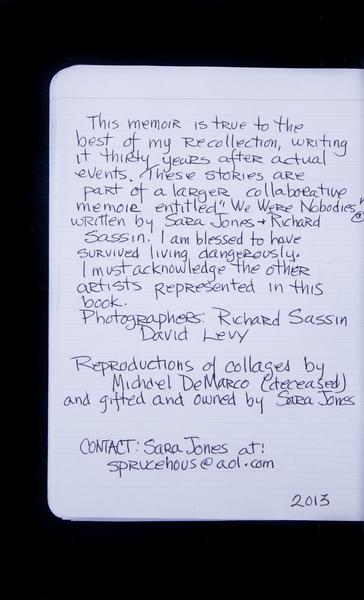 This memoir is true to the
best of my recollection, writing
it thirty years after actual
events. These stories are
part of a larger collaborative
memoir entitled "We Were Nobodies"
written by Sara Jones + Richard ©
Sassin. I am blessed to have
survived living dangerously.
I must acknowledge the other
artists represented in this
book.
Photographers: Richard Sassin
David Levy
Reproductions of collages by
Michael DeMarco (deceased)
and gifted and owned by Sara Jones
CONTACT: Sara Jones at:
sprucehous@aol.com
2013